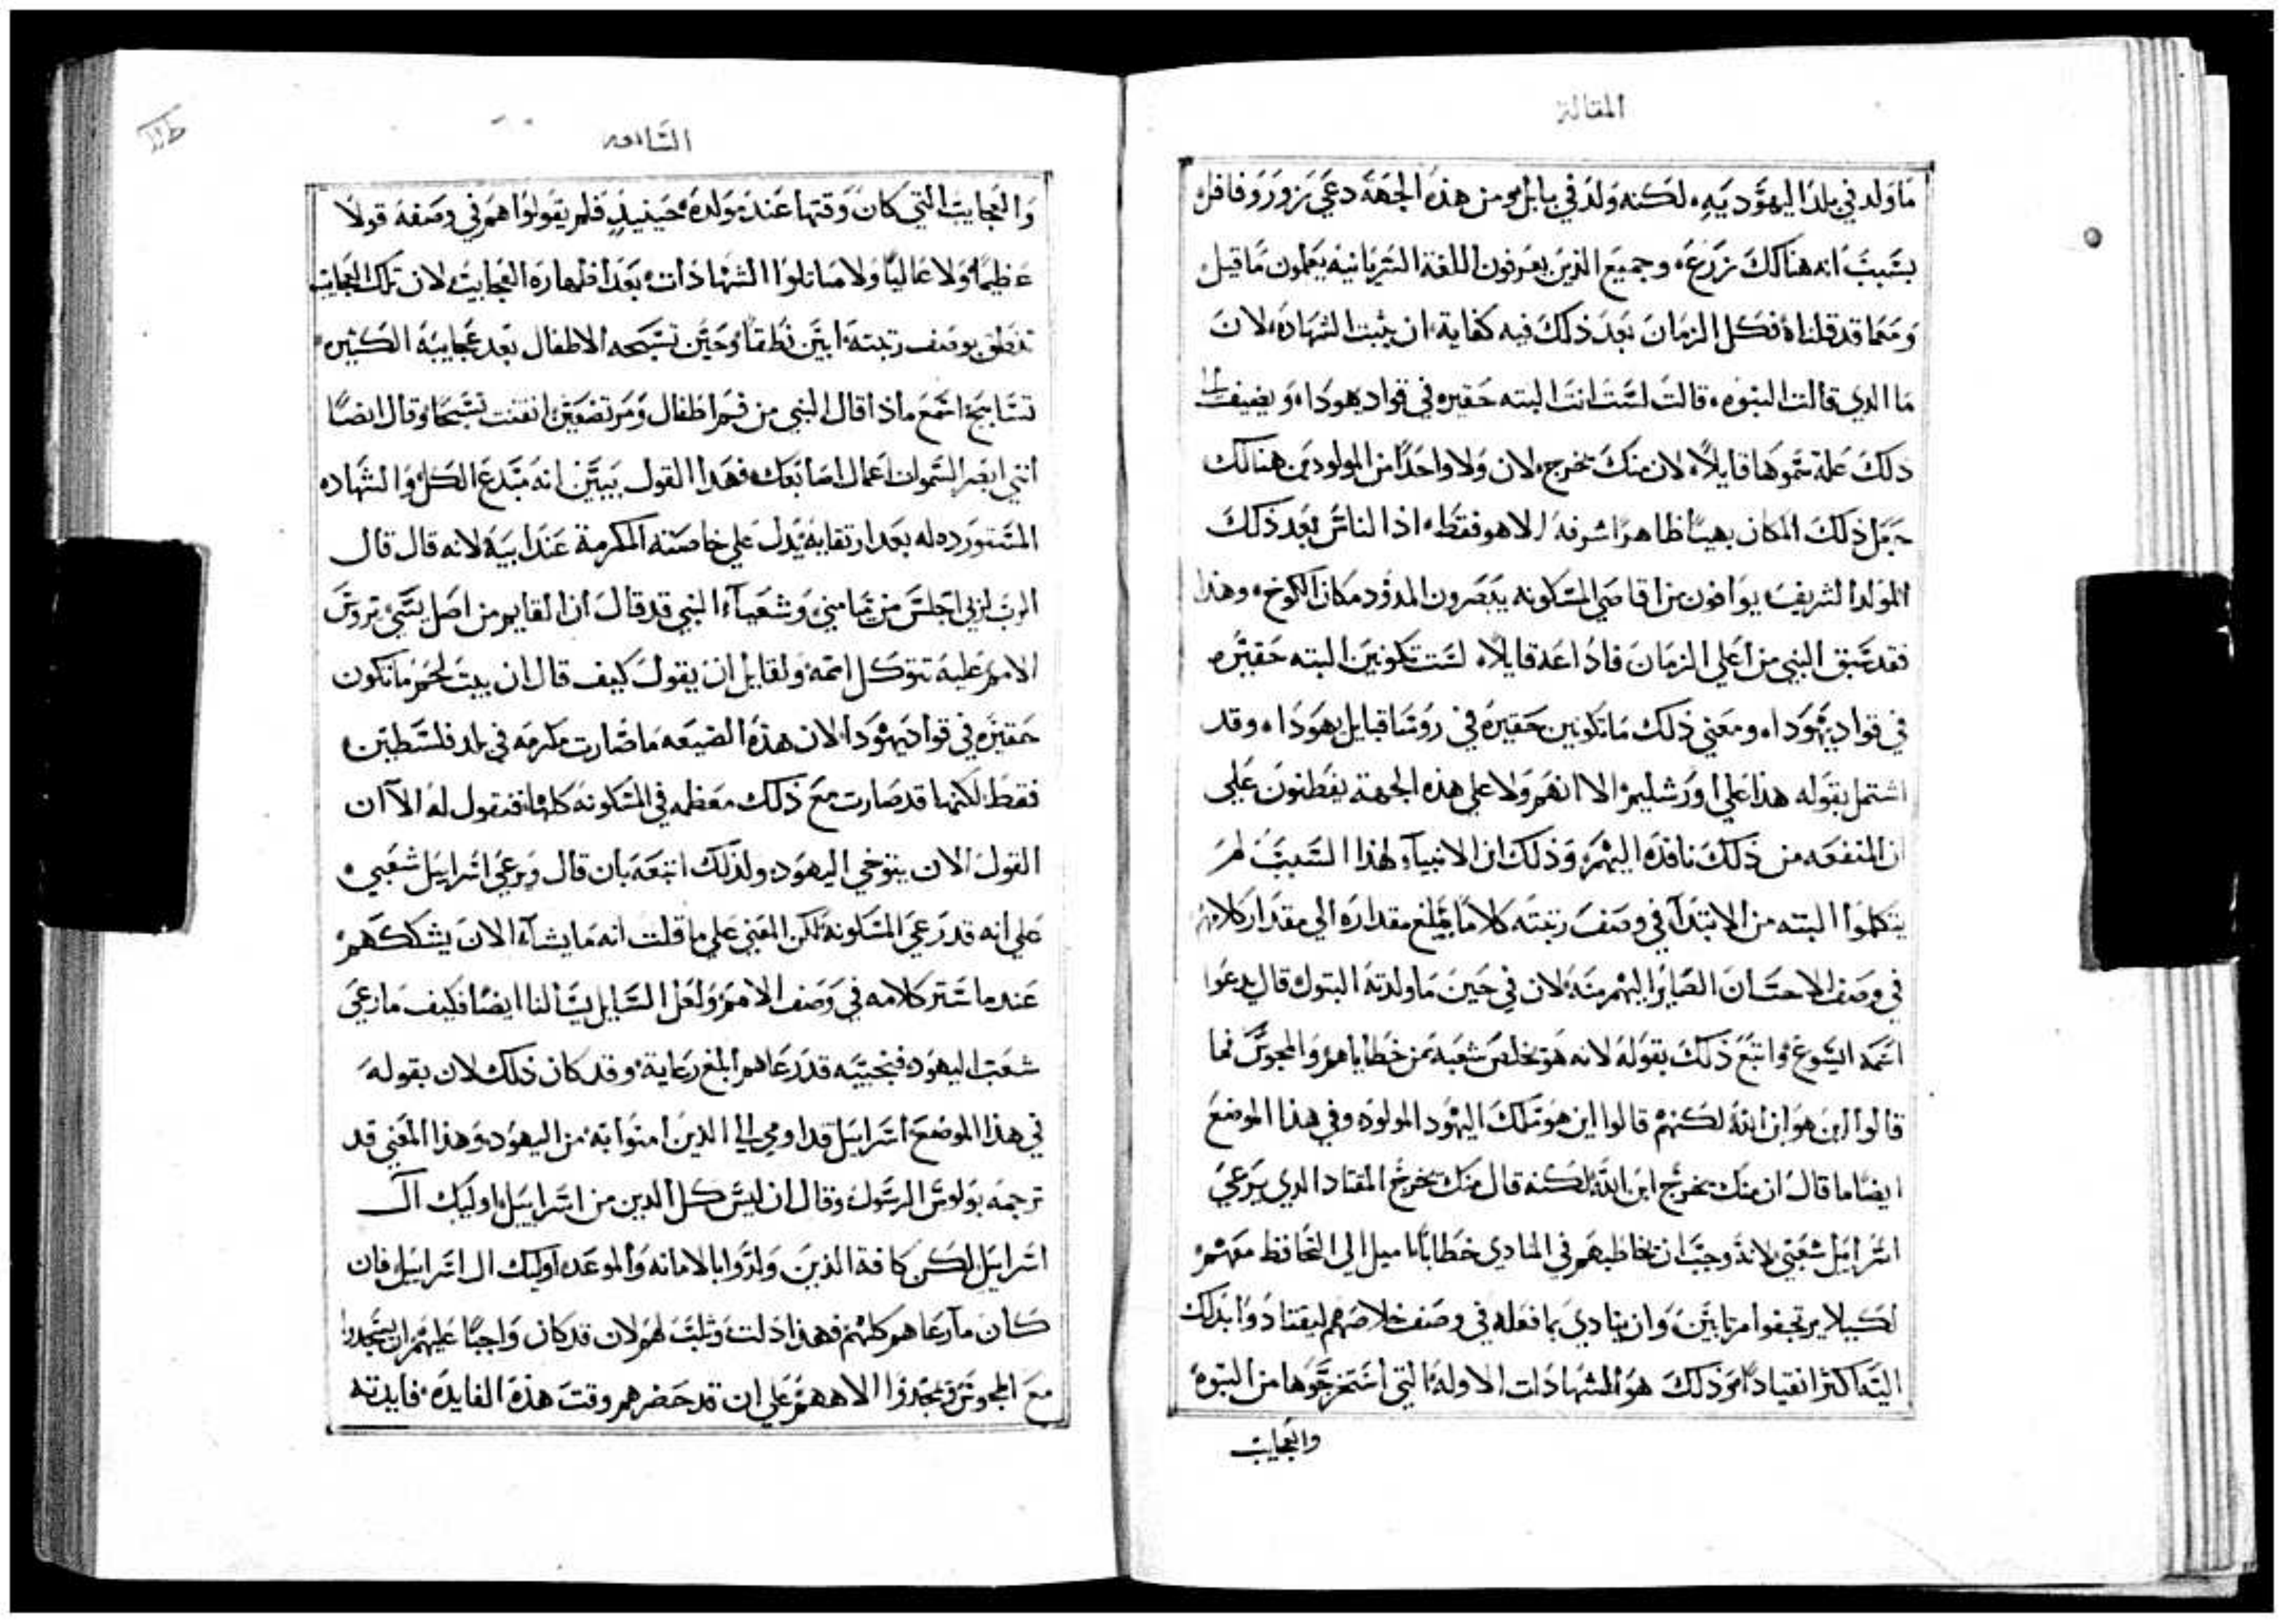 المقالة
ما ولد في بلد اليهوديه لكنه ولد في بابل ومن هذه الجهة دعي زوروفافل
بسبب انه هنالك زرع وجميع الذين يعرفون اللغة السريانيه يعلمون ما قيل
ومما قد قلناه فكل الزمان بعد ذلك فيه كفاية ان يثبت الشهادة لان
ما الدي قالت النبوه قالت لست انت البته حقيره في قواد يهودا ويضيف الي
ذلك علة سموها قايلاً لان منك يخرج لان ولا واحداً من المولودين هنالك
جعل ذلك المكان بهياً ظاهراً شرفه الا هو فقط اذ الناس بعد ذلك
المولد الشريف يوافون من اقاصي المسكونه يبصرون المدود مكان الكوخ وهذا
فقد سبق النبي من اعلي الزمان فاداعه قايلاً لست تكونين البته حقيره
في قواد يهودا ومعني ذلك ما تكونين حقيرة في روسا قبايل يهودا وقد
اشتمل بقوله هذا علي اورشليم الا انهم ولا علي هذه الجهة يفطنون علي
ان المنفعه من ذلك نافذه اليهم وذلك ان الانبيآء لهذا السبب لم
يتكلموا البته من الابتدآ في وصف رتبته كلاماً يبلغ مقداره الي مقدار كلامهم
في وصف الاحسان الصاير اليهم منه لان في حين ما ولدته البتول قال يدعوا
اسمه ايسوع واتبع ذلك بقوله لانه هو يخلص شعبه من خطاياهم والمجوس فما
قالوا اين هو ابن الله لكنهم قالوا اين هو ملك اليهود المولود وفي هذا الموضع
ايضاً ما قال ان منك يخرج ابن الله لكنه قال منك يخرج المقتاد الدي يرعي
اسراييل شعبي لانه وجب ان يخاطبهم في المبادي خطاباً مايلا الي التحافظ معهم
لكيلا يرتجفوا مرتابين وان ينادي بما فعله في وصف خلاصهم ليقتادوا بذلك
اليه اكثر انقياداً من ذلك هو الشهادات الاوله التي استخرجوها من النبوه
والعجايب
السادسه
والعجايب التي كان وقتها عند مولده حينيذٍ فلم يقولوا هم في وصفه قولاً
عظيماً ولا عالياً ولا ماثلوا الشهادات بعد اظهاره العجايب لان تلك العجايب
تنطق بوصف رتبته ابين نطقاً وحين تسبحه الاطفال بعد عجايبه الكثيره
تسابيح اسمع ماذا قال النبي من فم اطفال ومرتضعين اتقنت تسبحاً وقال ايضاً
انني ابصر السموات اعمال اصابعك فهذا القول يبين انه مبدع الكل والشهاده
المستورده له بعد ارتقايه يدل علي خاصته المكرمة عند ابيه لانه قال قال
الرب لربي اجلس من يماميني وشعيآء النبي قد قال ان القايم من اصل يسي يروس
الامم عليه تتوكل امم ولقايل ان يقول كيف قال ان بيت لحم ما تكون
حقيره في قواد يهودا لان هذه الضيعه ما صارت مكرمه في بلد فلسطين
فقط لكنها قد صارت مع ذلك معظمه في المسكونه كلها فنقول له الا ان
القول الان يتوخي اليهود ولذلك اتبعه بان قال ويرعي اسراييل شعبي
علي انه قد رعي المسكونه لكن المعني علي ما قلت انه ما يشآء الان يشككهم
عند ما ستر كلامه في وصف الامم ولعل السايل يسالنا ايضاً فكيف ما رعي
شعب اليهود فنجيبه قد رعاهم ابلغ رعاية وقد كان ذلك لان بقوله
في هذا الموضع اسراييل قد اومي الي الذين امنوا به من اليهود وهذا المعني قد
ترجمه بولوس الرسول وقال ان ليس كل الدين من اسراييل اوليك آل
اسراييل لكن كافة الذين ولدوا بالامانه والموعده اوليك ال اسراييل فان
كان ما رعاهم كلهم فهذا ذلت وثلب لهم لان قد كان واجباً عليهم ان يسجدوا
مع المجوس ويمجدوا الاههم علي ان قد حضرهم وقت هذه الفايده فايدته